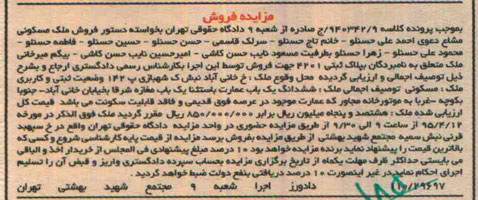 مزایده فروش
بموجب پرونده کلاسه ۹۴۰۳۴۲/۹/ج صادره از شعبه ۹ دادگاه حقوقی تهران بخواسته دستور فروش ملک مسکونی
مشاع دعوی احمد علی حسنلو - خانم تاج حسنلو - سرلک قدسی - حسن حسنلو - حسین حسنلو - فاطمه حسنلو -
محمود علی حسنلو - زهرا حسنلو بطرفیت مسعود نایب حسن کاشی - امیرحسین نایب حسن کاشی - بیگم میرخانی
ملک متعلق به نامبردگان بپلاک ثبتی ۴۲۰۰۱ جهت فروش توسط این اجرا بکارشناس رسمی دادگستری ارجاع و بشرح
ذیل توصیف اجمالی و ارزیابی گردیده محل وقوع ملک: خ خانی آباد نبش ک شهبازی پ ۱۴۲ وضعیت ثبتی و کاربری
ملک: مسکونی توصیف اجمالی ملک: ششدانگ یک باب عمارت باستثنا یک باب مغازه شرقا بخیابان خانی آباد- جنوبا
بکوچه -غربا به موتورخانه مجاور که عمارت موجود در عرصه فوق قدیمی و فاقد قابلیت سکونت می باشد. قیمت کل
ارزیابی شده ملک: هشتصد و پنجاه میلیون ریال برابر ۸۵۰/۰۰۰/۰۰۰ ریال مقرر گردید ملک فوق الذکر در مورخه
۹۵/۴/۱۲ از ساعت ۹ الی ۹/۳۰ از طریق مزایده حضوری در واحد مزایده دادگاه حقوقی تهران واقع در خ سپهبد
قرنی نبش سمیه مجتمع شهید بهشتی از طریق مزایده بفروش برسد مزایده از قیمت پایه کارشناسی شروع و کسی که
بالاترین قیمت را پیشنهاد نماید برنده مزایده خواهد بود ۱۰ درصد مبلغ پیشنهادی فی المجلس از خریدار اخذ و الباقی
می بایستی حداکثر ظرف مهلت یکماه از تاریخ برگزاری مزایده بحساب سپرده دادگستری واریز و قبض آن را تسلیم
اجرای احکام نماید در غیر اینصورت ۱۰ درصد دریافتی بنفع دولت ضبط خواهد گردید.
۱۱۰/۲۹۶۹۷ دادورز اجرا شعبه ۹ مجتمع شهید بهشتی تهران